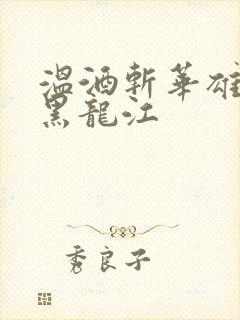 温酒斬華雄
黑龍江
秀良子